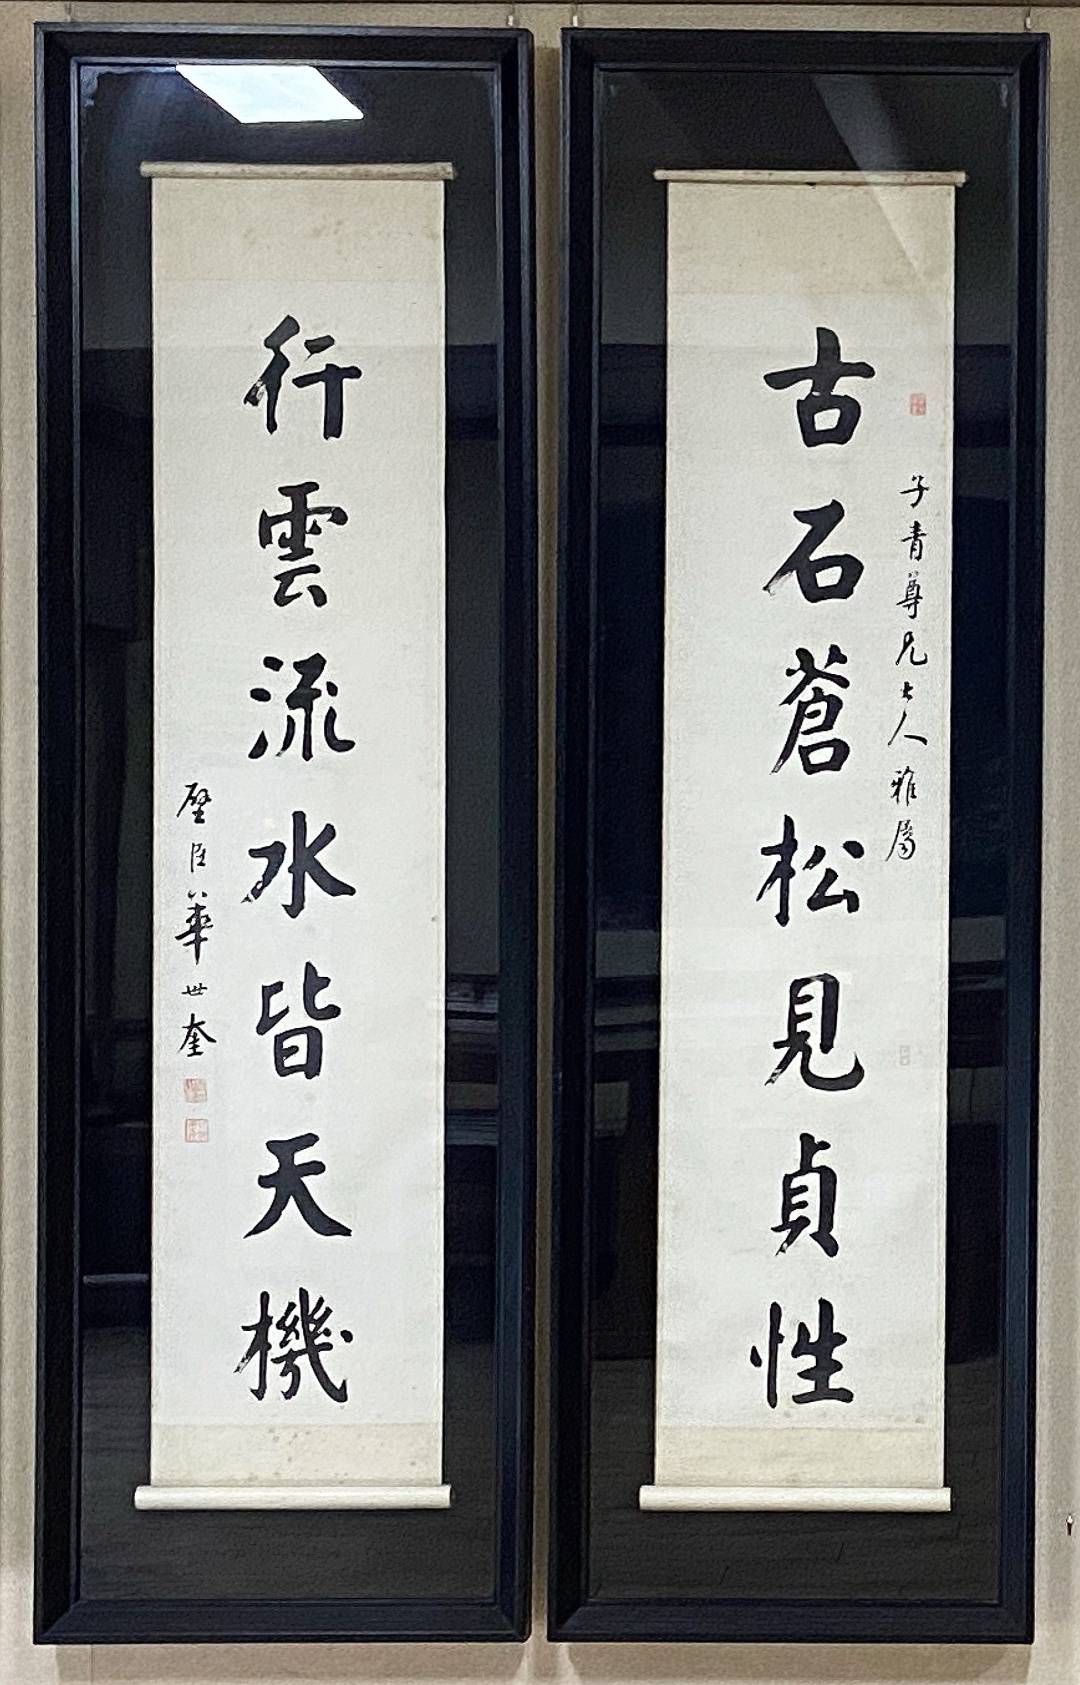 子青尊兄大人雅屬
古石蒼松見貞性
行雲流水皆天機
璧臣華世奎